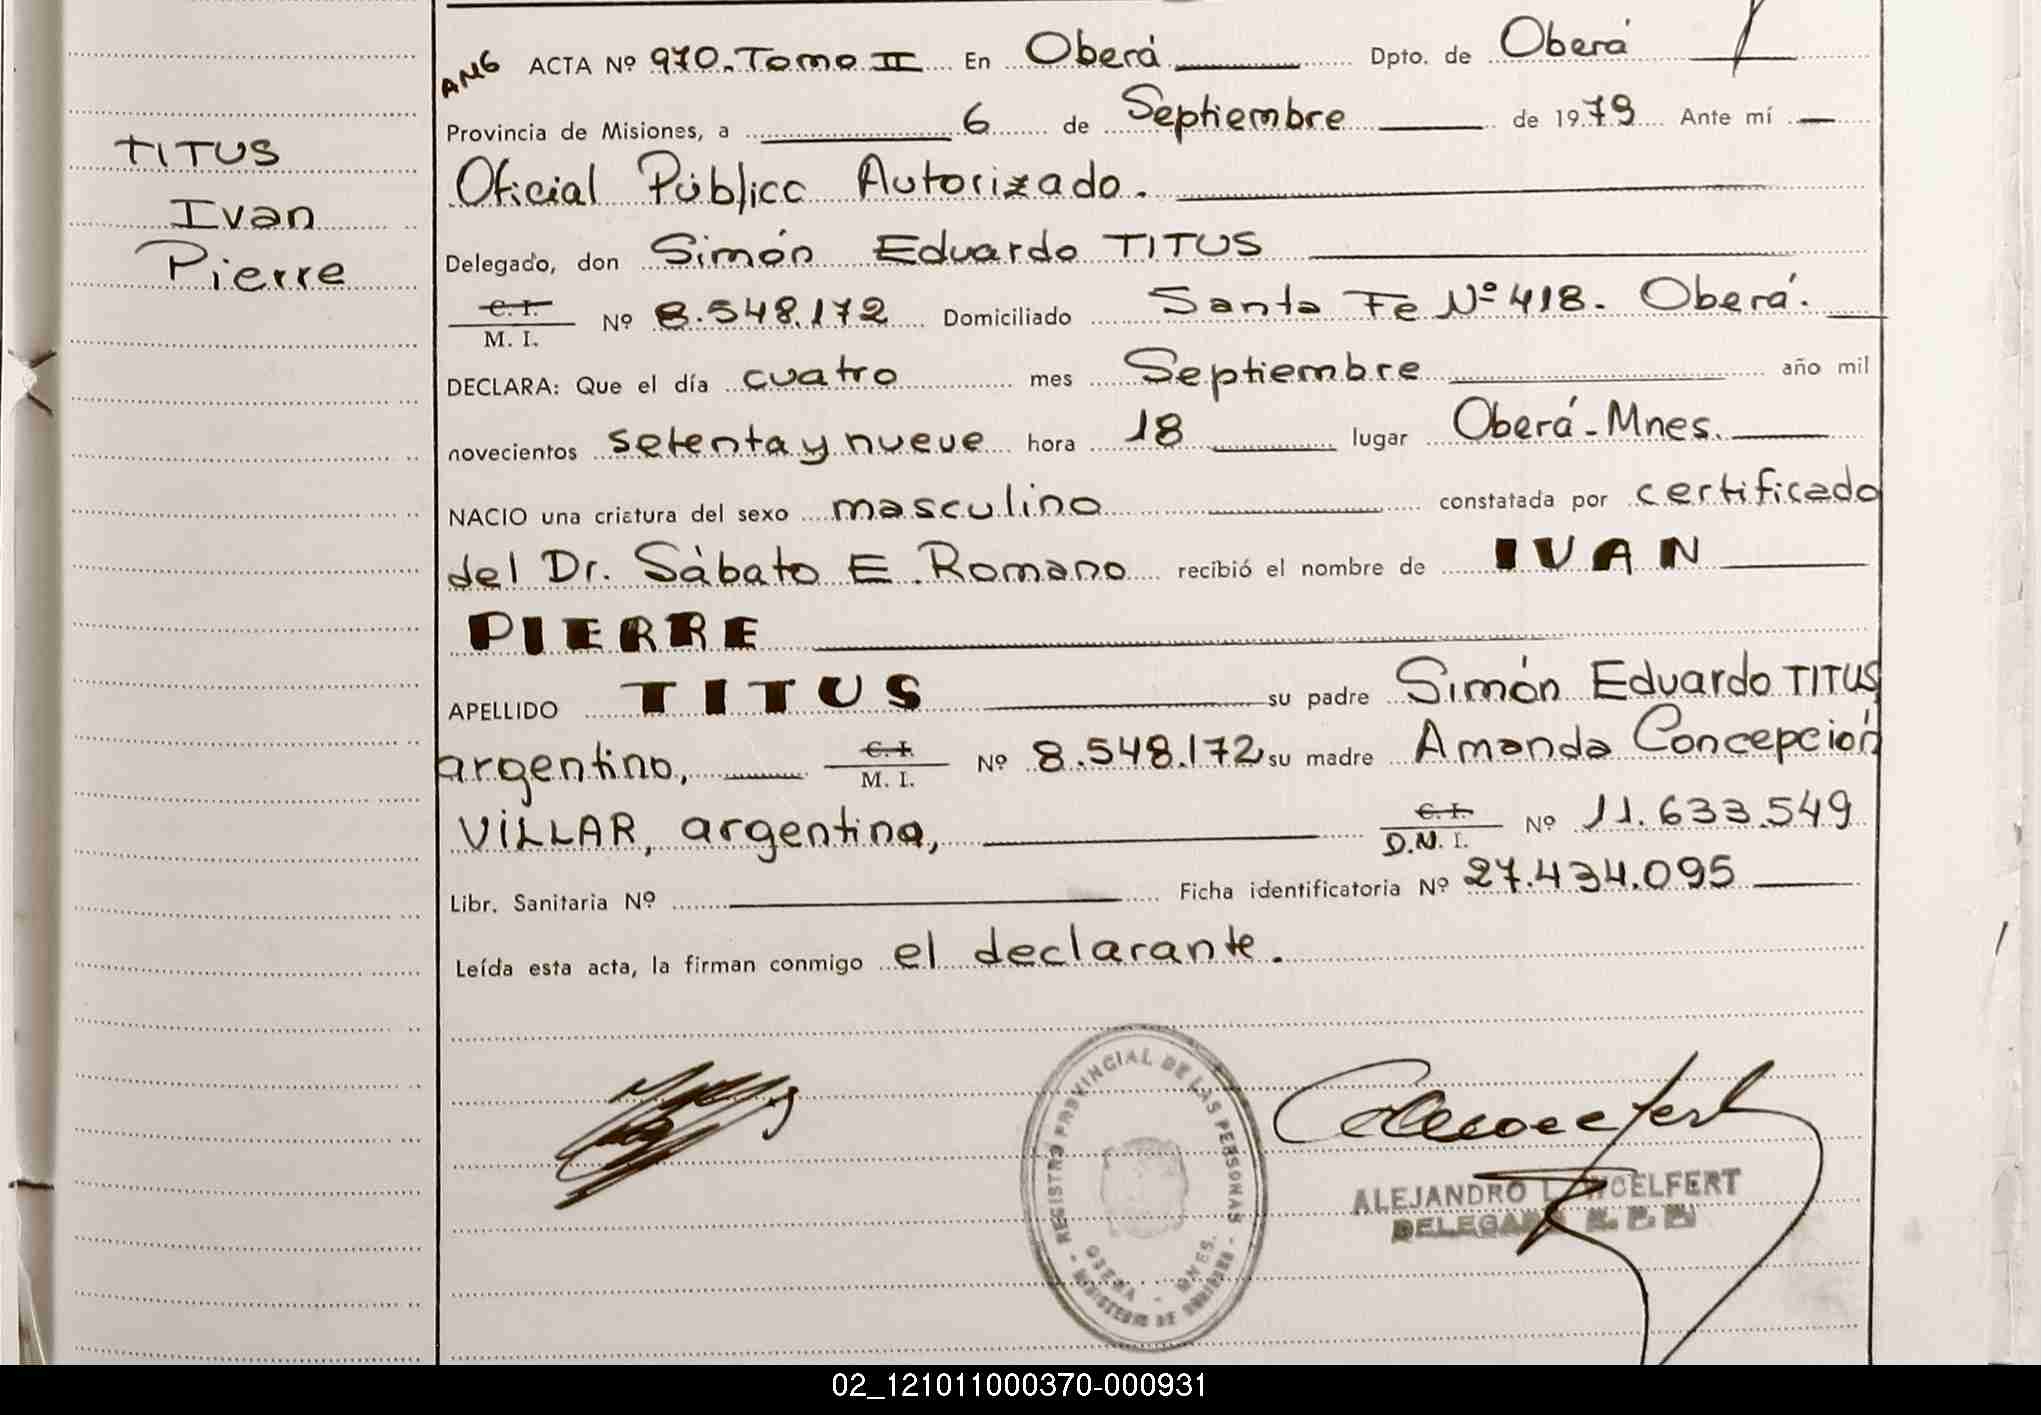 TITUS
Ivan
Pierre
ANG ACTA Nº 970. Tomo II En Oberá Dpto. de Oberá
Provincia de Misiones, a 6 de Septiembre de 1979 Ante mí
Oficial Público Autorizado.
Delegado, don Simón Eduardo TITUS
C. I.
M. I. Nº 8.548.172 Domiciliado Santa Fe Nº 418. Oberá.
DECLARA: Que el día cuatro mes Septiembre año mil
novecientos setenta y nueve hora 18 lugar Oberá - Mnes.
NACIO una criatura del sexo masculino constatada por certificado
del Dr. Sábato E. Romano recibió el nombre de IVAN
PIERRE
APELLIDO TITUS su padre Simón Eduardo TITUS
argentino, C. I. M. I. Nº 8.548.172 su madre Amanda Concepción
VILLAR, argentina, C. I. D.N. I. Nº 11.633.549
Libr. Sanitaria Nº Ficha identificatoria Nº 27.434.095
Leída esta acta, la firman conmigo el declarante.
REGISTRO PROVINCIAL DE LAS PERSONAS - MINISTERIO DE GOBIERNO -
OBERA - MNES.
ALEJANDRO L. WOELFERT
DELEGADO
02_121011000370-000931